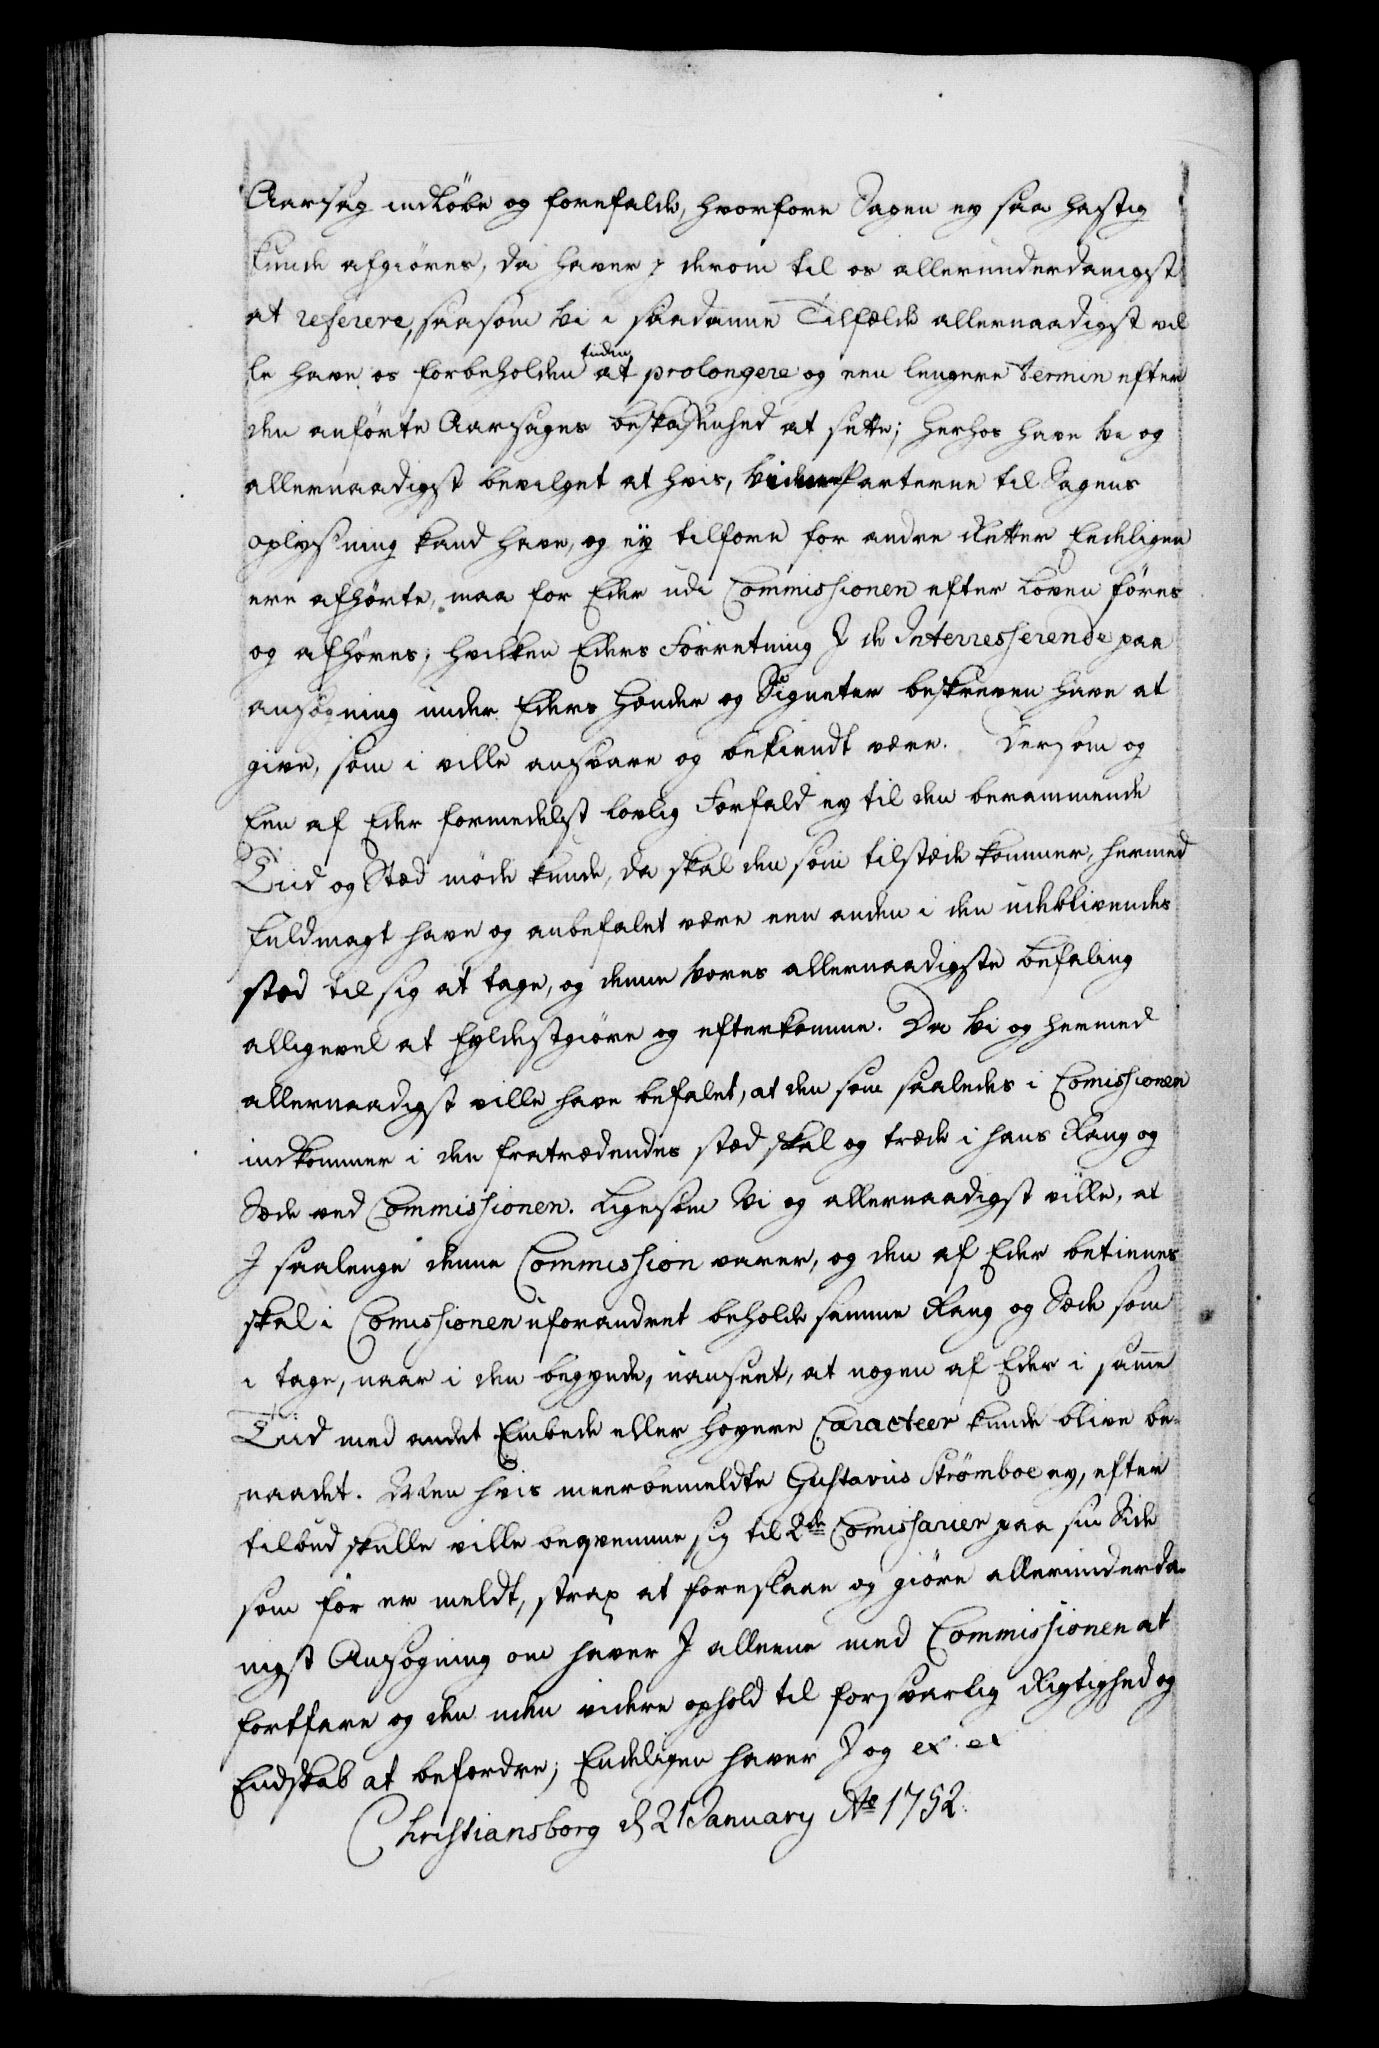 Aarsag indløbe og forefalde, hvorfore Sagen ey saa hastig
kunde afgiøres, da haver I derom til os allerunderdanigst
at referere, saasom vi i saadanne Tilfælde allernaadigst vil
le have os forbeholden tiden at prolongere og een lengere termin efter
den anførte Aarsages beskaffenhed at sætte; herhos have vi og
allernaadigst bevilget at hvis, vidner Parterne til Sagens
oplysning kand have, og ey tilforn for andre Retter Endeligen
ere afhørte, maa for Eder udi Commissionen efter Loven føres
og afhøres; hvilken Eders Forretning I de Interresserende paa
ansøgning under Eders Hænder og Signeter beskreven have at
give, som i ville ansvare og bekiendt være. Dersom og
Een af Eder formedelst lovlig Forfald ey til den berammende
Tiid og Stæd møde kunde, da skal den som tilstæde kommer, hermed
fuldmagt have og anbefalet være een anden i den udeblivendes
stæd til sig at tage, og denne vores allernaadigste befaling
alligevel at fyldestgiøre og efterkomme. Da vi og hermed
allernaadigst ville have befalet, at den som saaledes i Comissionen
indkommer i den fratrædendes stæd skal og træde i hans Rang og
Sæde ved Commissionen. Ligesom Vi og allernaadigst ville, at
I saalenge denne Commission varer, og den af Eder betienes
skal i Comissionen uforandret beholde samme Rang og Sæde som
i tage, naar i den begynde, uanseet, at nogen af Eder i samme
Tiid med andet Embede eller høyere Caracteer kunde blive be-
naadet. Men hvis meerbemeldte Gustavus Strømboe ey, efter
tilbud skulle ville beqvemme sig til 2de Comissarier paa sin Side
som før er meldt, strax at foreslaae og giøre allerunderda-
nigst Ansøgning om haver I alleene med Commissionen at
fortfare og den uden videre ophold til forsvarlig Rigtighed og
Endskab at befordre; Endeligen haver I og ex ex
Christiansborg d 21 January Ao 1752.